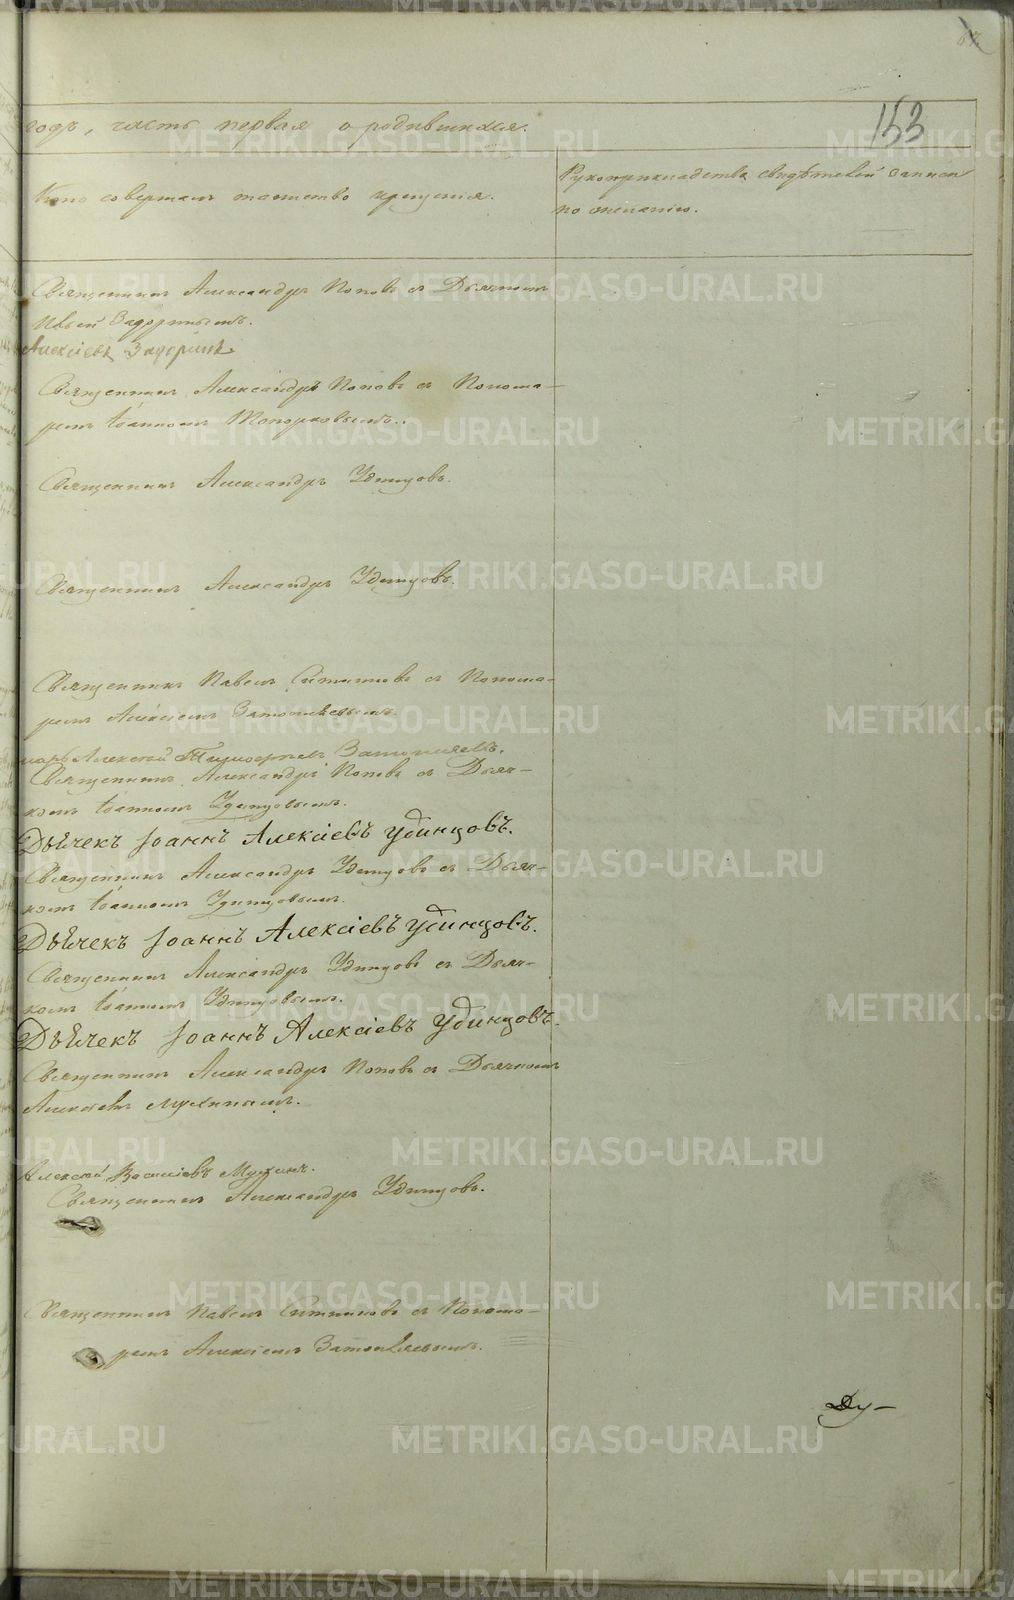 153
годъ, часть первая о родившихся.
Кто совершалъ таинство крещенія.
Рукоприкладства свидѣтелей записи
по желанію.
Священникъ Александръ Поповъ съ Дьячкомъ
Задоринымъ.
Алексіевъ Задоринъ
Священникъ Александръ Поповъ съ Понома-
ремъ Іоанномъ Топорковымъ.
Священникъ Александръ Удинцовъ.
Священникъ Александръ Удинцовъ.
Священникъ Павелъ Ситниковъ съ Понома-
ремъ Алексіемъ Затопляевымъ.
марь Алексѣй Затопляевъ.
Священникъ Александръ Поповъ съ Дьяч-
комъ Іоанномъ Удинцовымъ.
Дьячекъ Іоаннъ Алексіевъ Удинцовъ.
Священникъ Александръ Удинцовъ съ Дьяч-
комъ Іоанномъ Удинцовымъ.
Дьячекъ Іоаннъ Алексіевъ Удинцовъ.
Священникъ Александръ Удинцовъ съ Дьяч-
комъ Іоанномъ Удинцовымъ.
Дьячекъ Іоаннъ Алексіевъ Удинцовъ.
Священникъ Александръ Поповъ съ Дьячкомъ
Алексѣемъ Мухинымъ.
Алексѣй Василіевъ Мухинъ.
Священникъ Александръ Удинцовъ.
Священникъ Павелъ Ситниковъ съ Понома-
ремъ Алексіемъ Затопляевымъ.
Ду-
METRIKI.GASO-URAL.RU